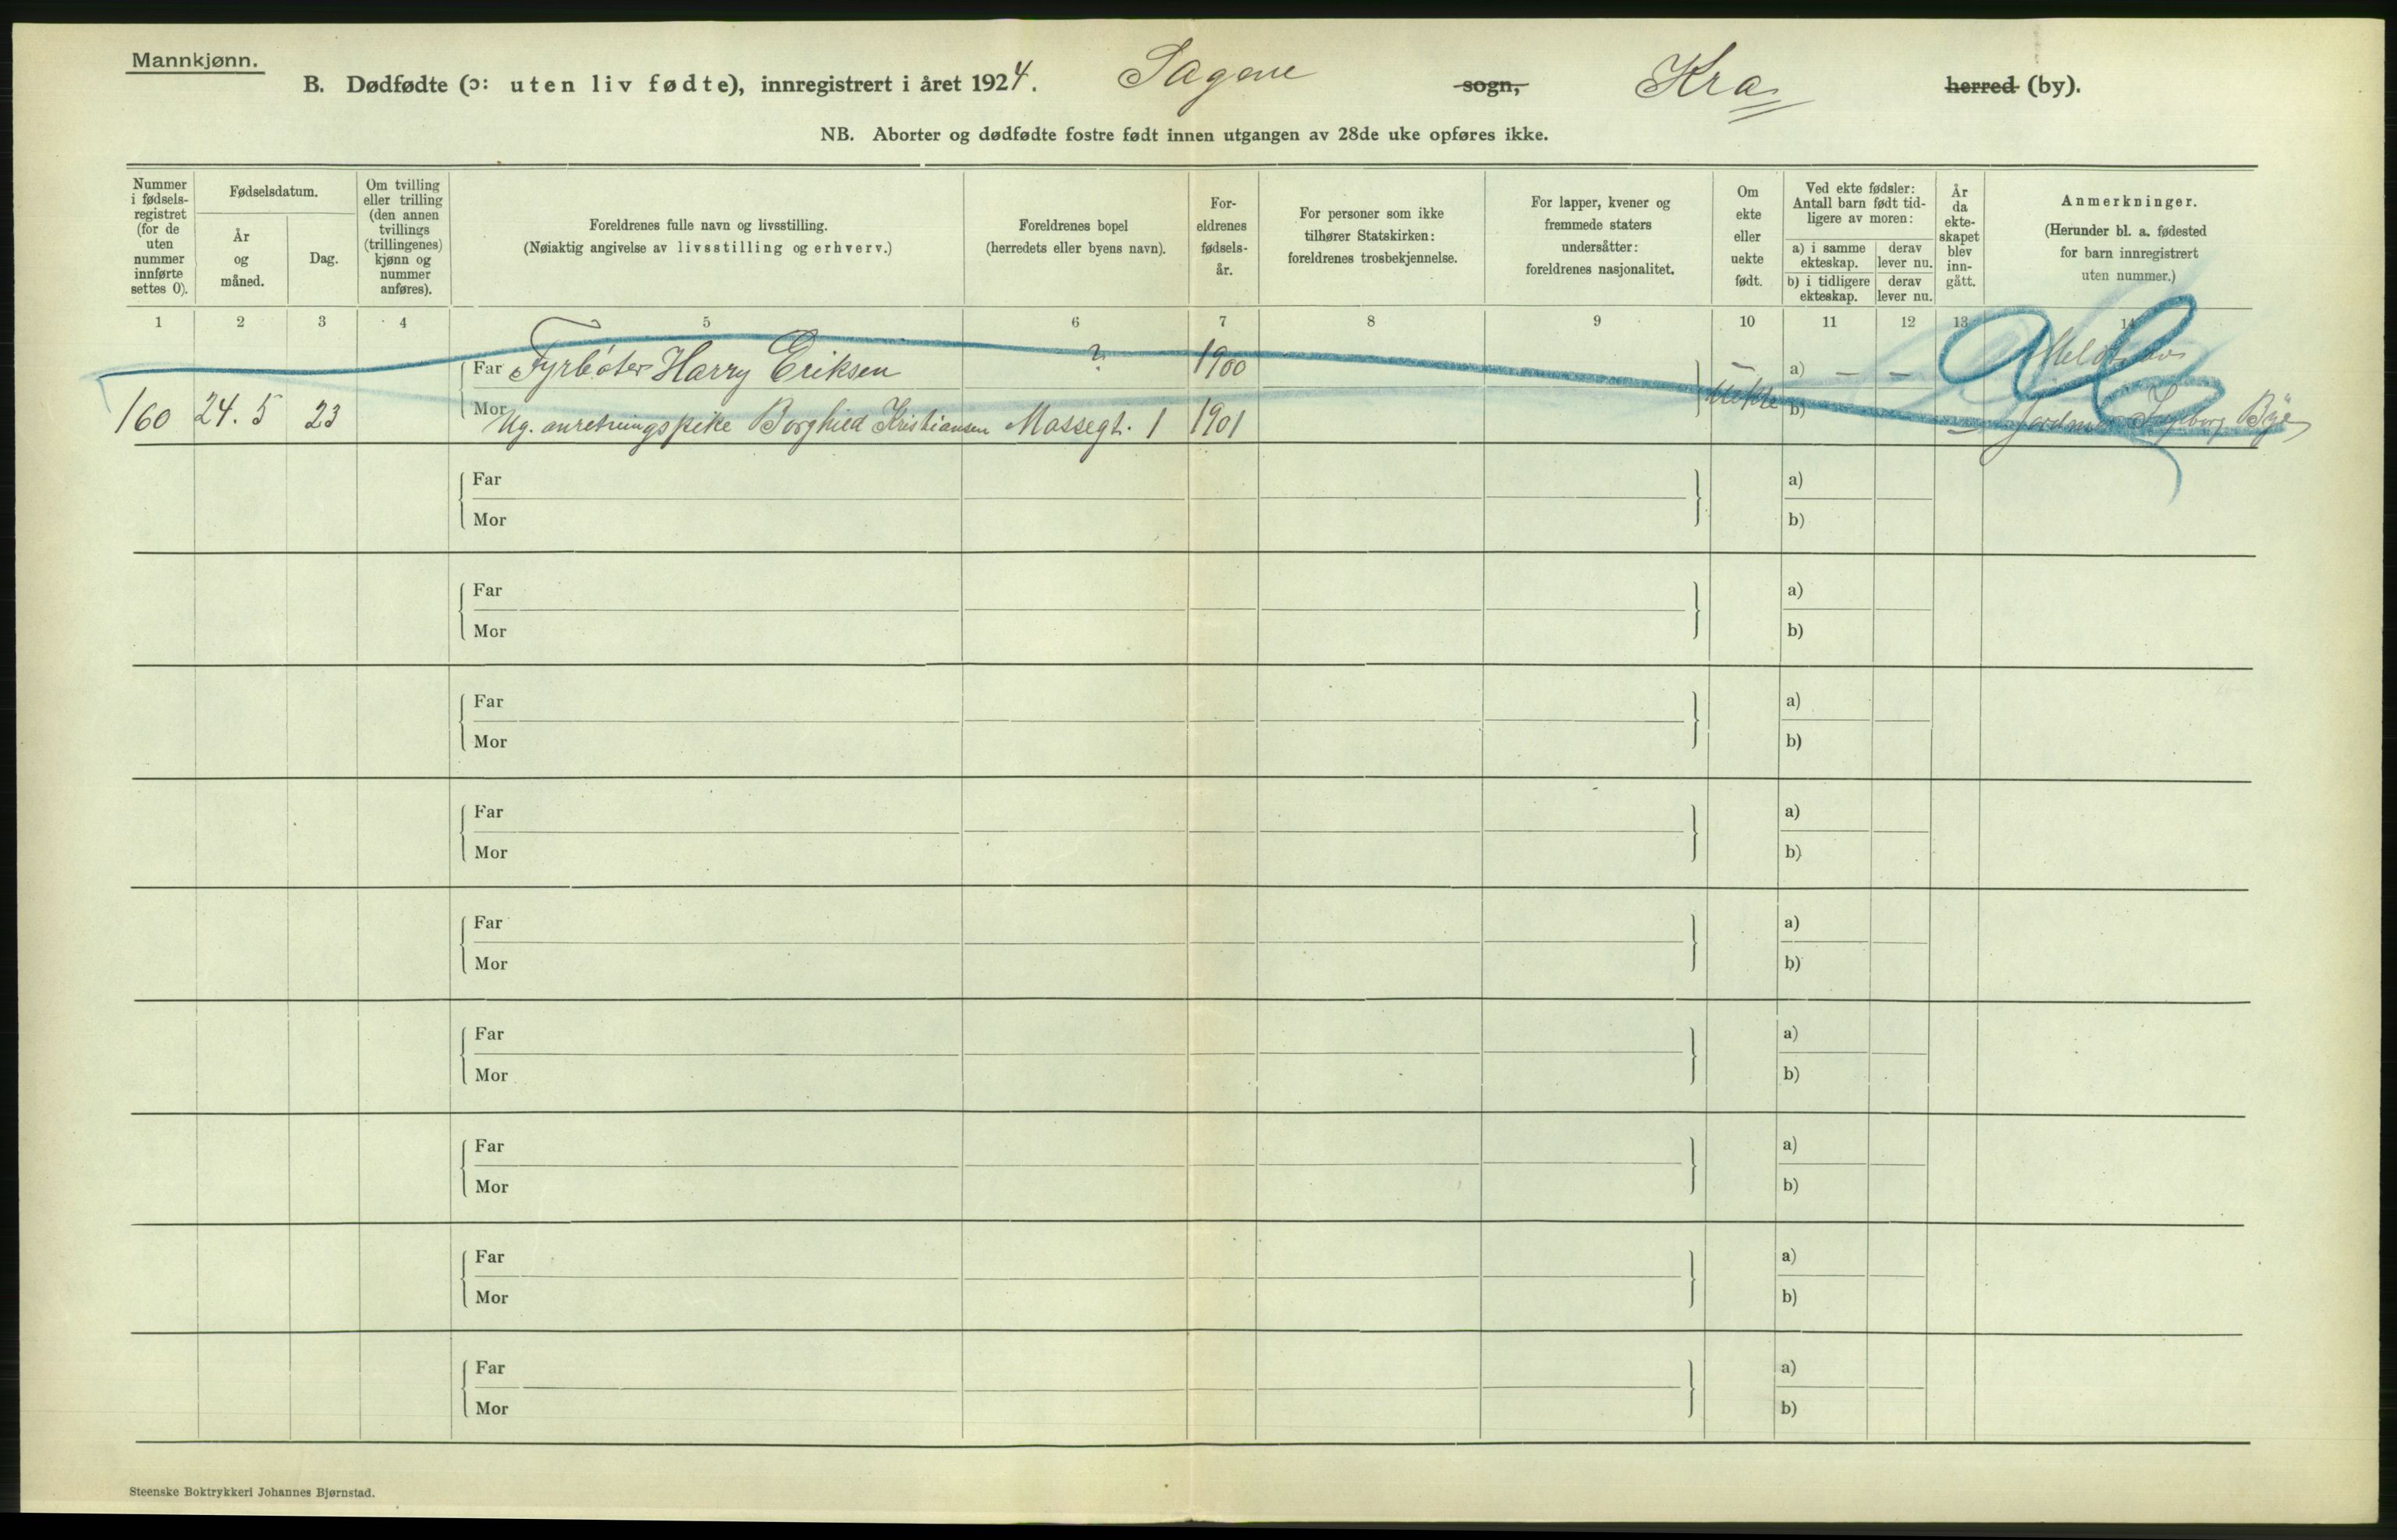 Mannkjønn.
B. Dødfødte (ɔ: uten liv fødte), innregistrert i året 1924. Sagene sogn, Kra herred (by).
NB. Aborter og dødfødte fostre født innen utgangen av 28de uke opføres ikke.
Nummer i fødsels-registret (for de uten nummer innførte settes 0).
Fødselsdatum.
År og måned.
Dag.
Om tvilling eller trilling (den annen tvillings (trillingenes) kjønn og nummer anføres).
Foreldrenes fulle navn og livsstilling.
(Nøiaktig angivelse av livsstilling og erhverv.)
Foreldrenes bopel
(herredets eller byens navn).
For-eldrenes fødsels-år.
For personer som ikke tilhører Statskirken: foreldrenes trosbekjennelse.
For lapper, kvener og fremmede staters undersåtter: foreldrenes nasjonalitet.
Om ekte eller uekte født.
Ved ekte fødsler: Antall barn født tid-ligere av moren:
a) i samme ekteskap.
derav lever nu.
b) i tidligere ekteskap.
derav lever nu.
År da ekte-skapet blev inn-gått.
Anmerkninger.
(Herunder bl. a. fødested for barn innregistrert uten nummer.)
1 2 3 4 5 6 7 8 9 10 11 12 13 14
Far Fyrbøter Harry Eriksen ? 1900 — a) — —
160 24. 5 23 Mor Ug. anretningspike Borghild Kristiansen Mossegt. 1 1901 uekte b) — Jordmor Ingeborg Bye
Far a)
Mor b)
Far a)
Mor b)
Far a)
Mor b)
Far a)
Mor b)
Far a)
Mor b)
Far a)
Mor b)
Far a)
Mor b)
Far a)
Mor b)
Far a)
Mor b)
Steenske Boktrykkeri Johannes Bjørnstad.